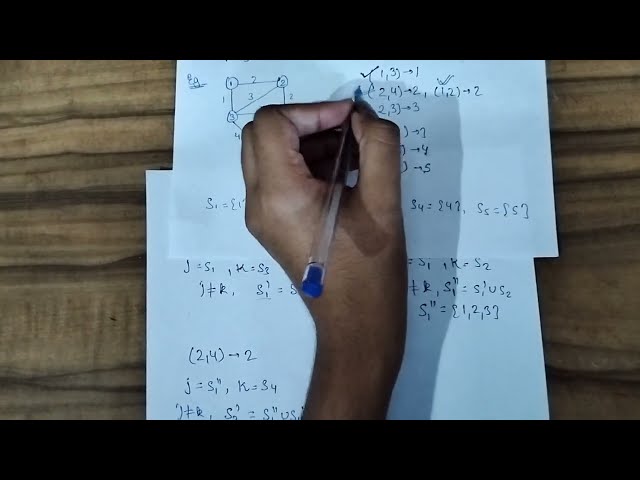 Eg
1 2 2
1 3 2
3
4
(1,3) → 1
(2,4) → 2, (1,2) → 2
2,3) → 3
) → 4
) → 5
S₁ = {1
S₄ = {4}, S₅ = {5}
j = S₁, K = S₃
j ≠ k, S₁' = S
S₁, K = S₂
≠ k, S₁'' = S₁' ∪ S₂
S₁'' = {1,2,3}
(2,4) → 2
j = S₁'', K = S₄
j ≠ k, S₂' = S₁'' ∪ S